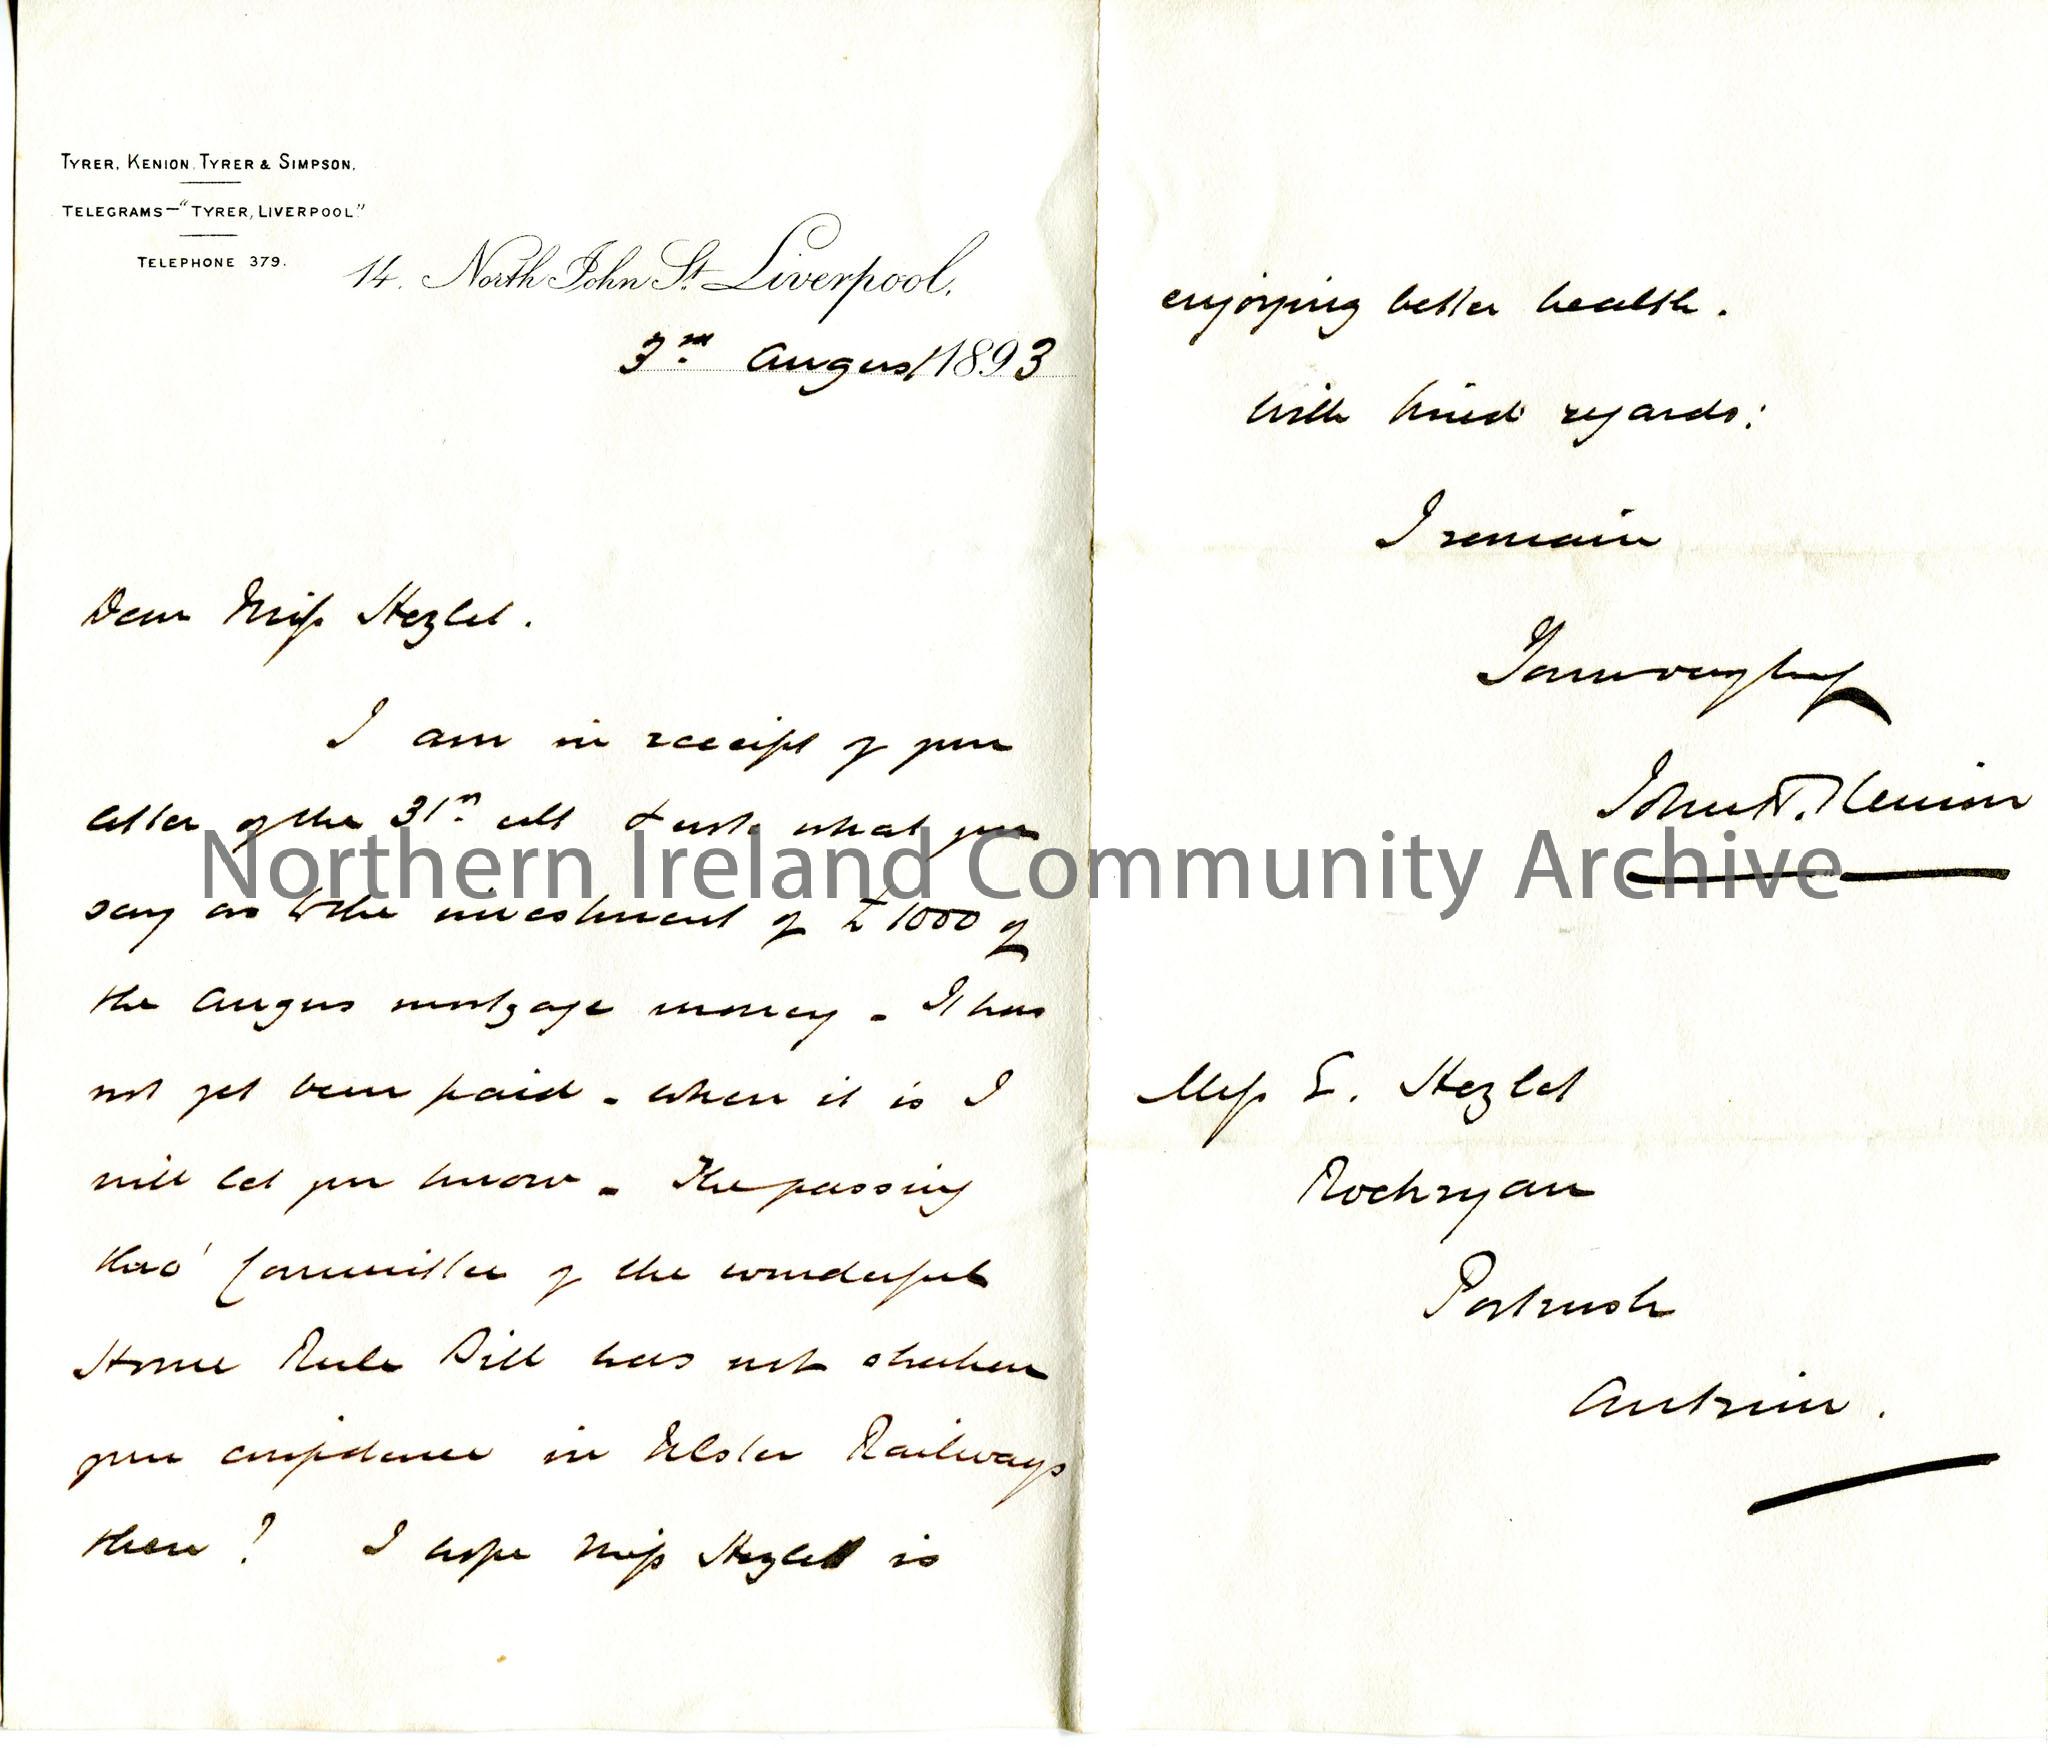 TYRER, KENION, TYRER & SIMPSON.
TELEGRAMS—"TYRER, LIVERPOOL"
TELEPHONE 379.
14. North John St. Liverpool.
3rd August 1893
Dear Miss Hezlet.
I am in receipt of your
letter of the 31st ult & note what you
say as to the investment of £1000 of
the Angus mortgage money - It has
not yet been paid - when it is I
will let you know - The passing
thro' Committee of the wonderful
Home Rule Bill has not shaken
your confidence in Ulster Railways
then? I hope Miss Hezlet is
enjoying better health.
With kind regards:
I remain
Yours very truly
John H. Kenion
Miss E. Hezlet
Rockryan
Portrush
Antrim.
Northern Ireland Community Archive